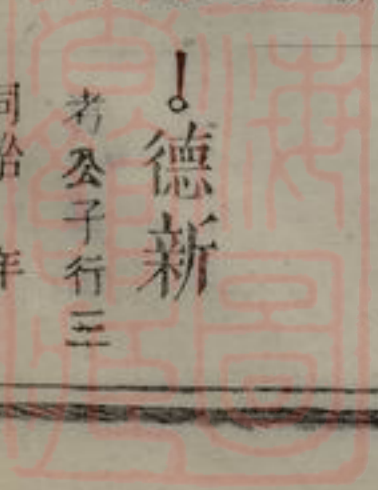 德新
考公子行三
同治 年